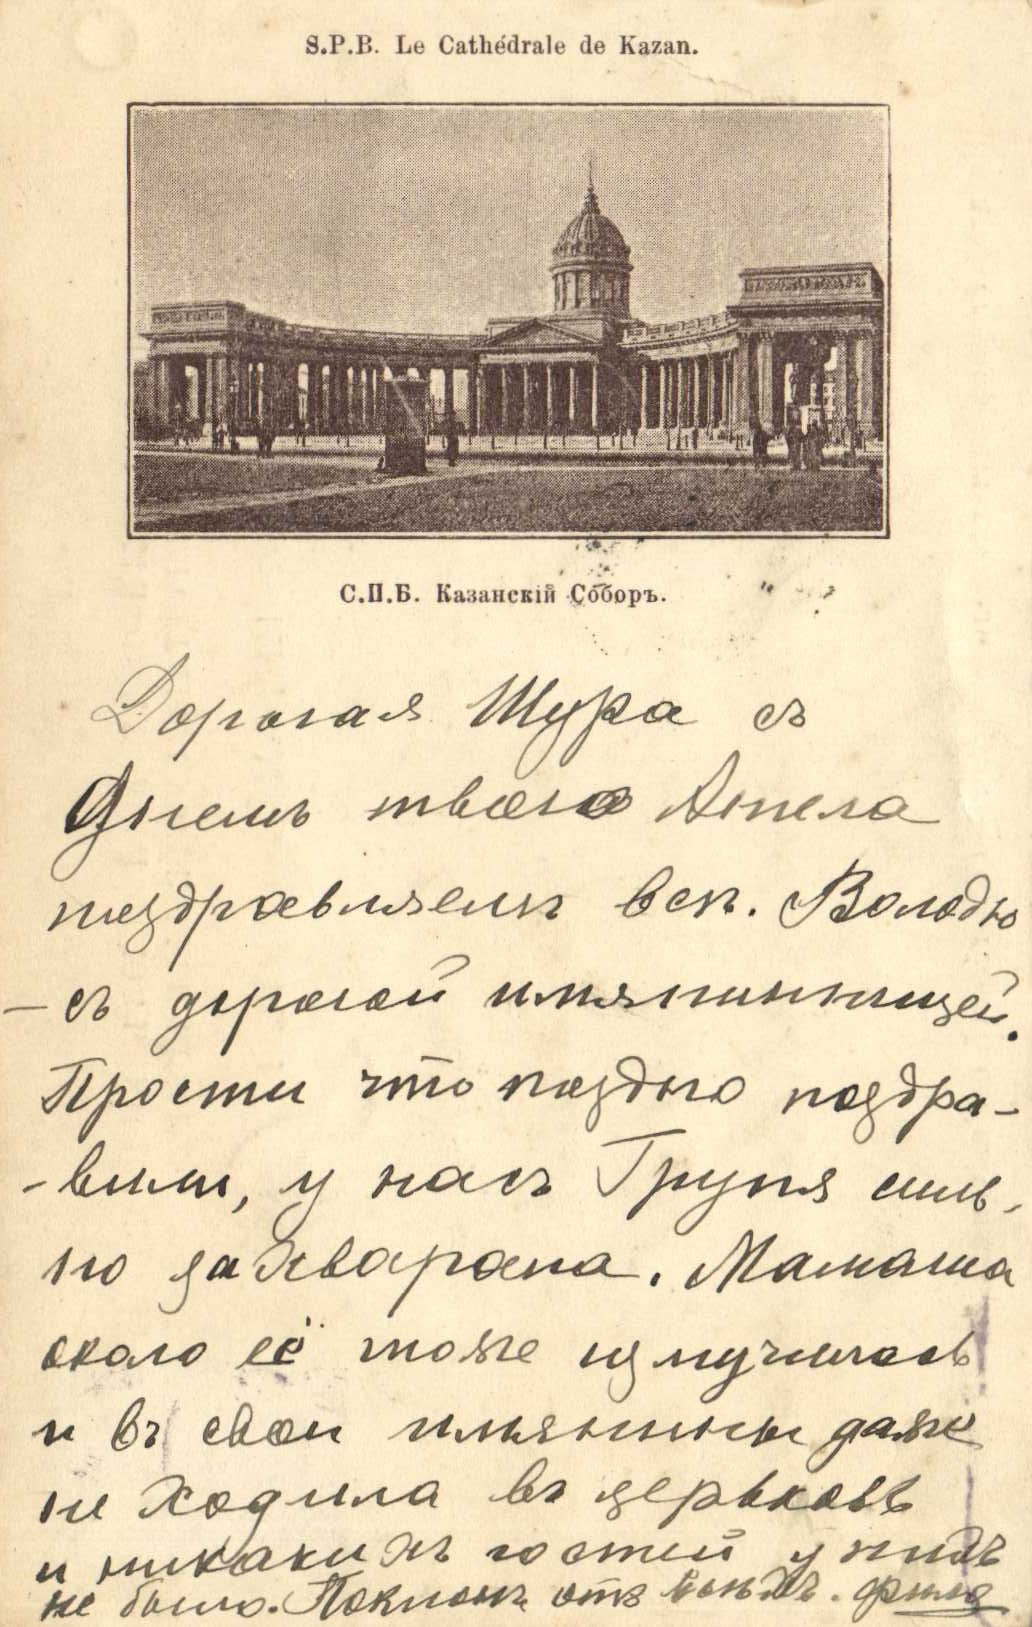 S.P.B. Le Cathédrale de Kazan.
С.П.Б. Казанскій Соборъ.
Дорогая Шура съ
Днемъ твоего Ангела
поздравляемъ всѣ. Володю
- съ дорогой имянинницей.
Прости что поздно поздра-
-вили, у насъ Груня силь-
но захварала. Мамаша
около её тоже измучилась
и въ свои имянины даже
не ходила въ церьковь
и никакихъ гостей у нихъ
не было. Поклонъ отъ всѣхъ.